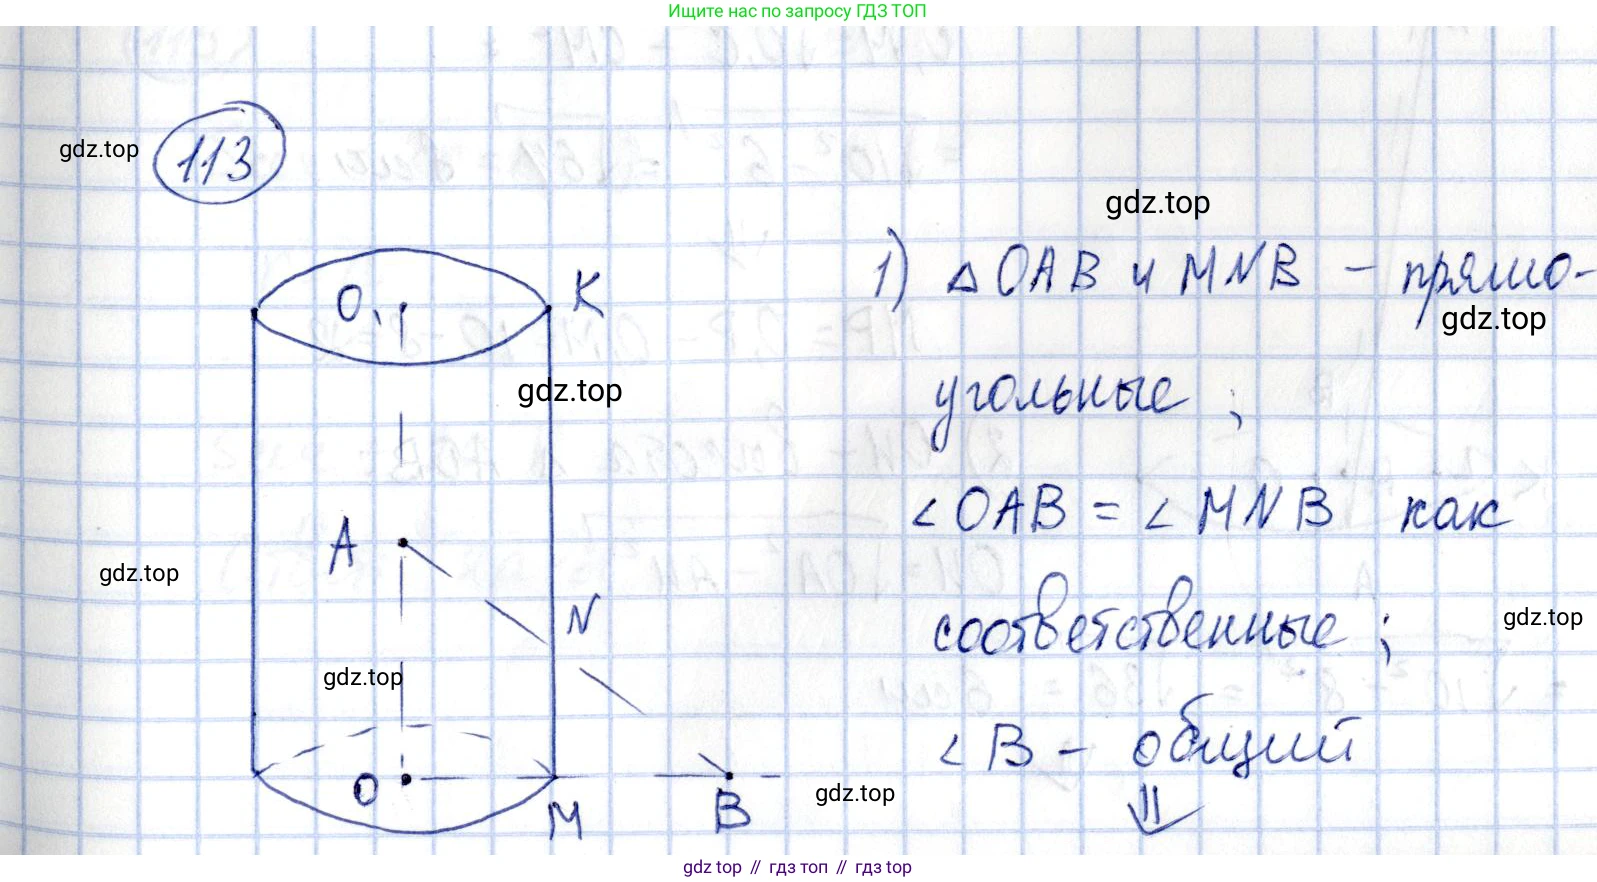 Ищите нас по запросу ГДЗ ТОП
113
gdz.top
gdz.top
1) △OAB и MNB - прямо-
gdz.top
угольные ;
∠OAB = ∠MNB как
соответственные ;
∠B - общий
⇓
O₁
K
gdz.top
A
N
gdz.top
gdz.top
gdz.top
O
M
B
gdz.top
gdz top // гдз топ // gdz top